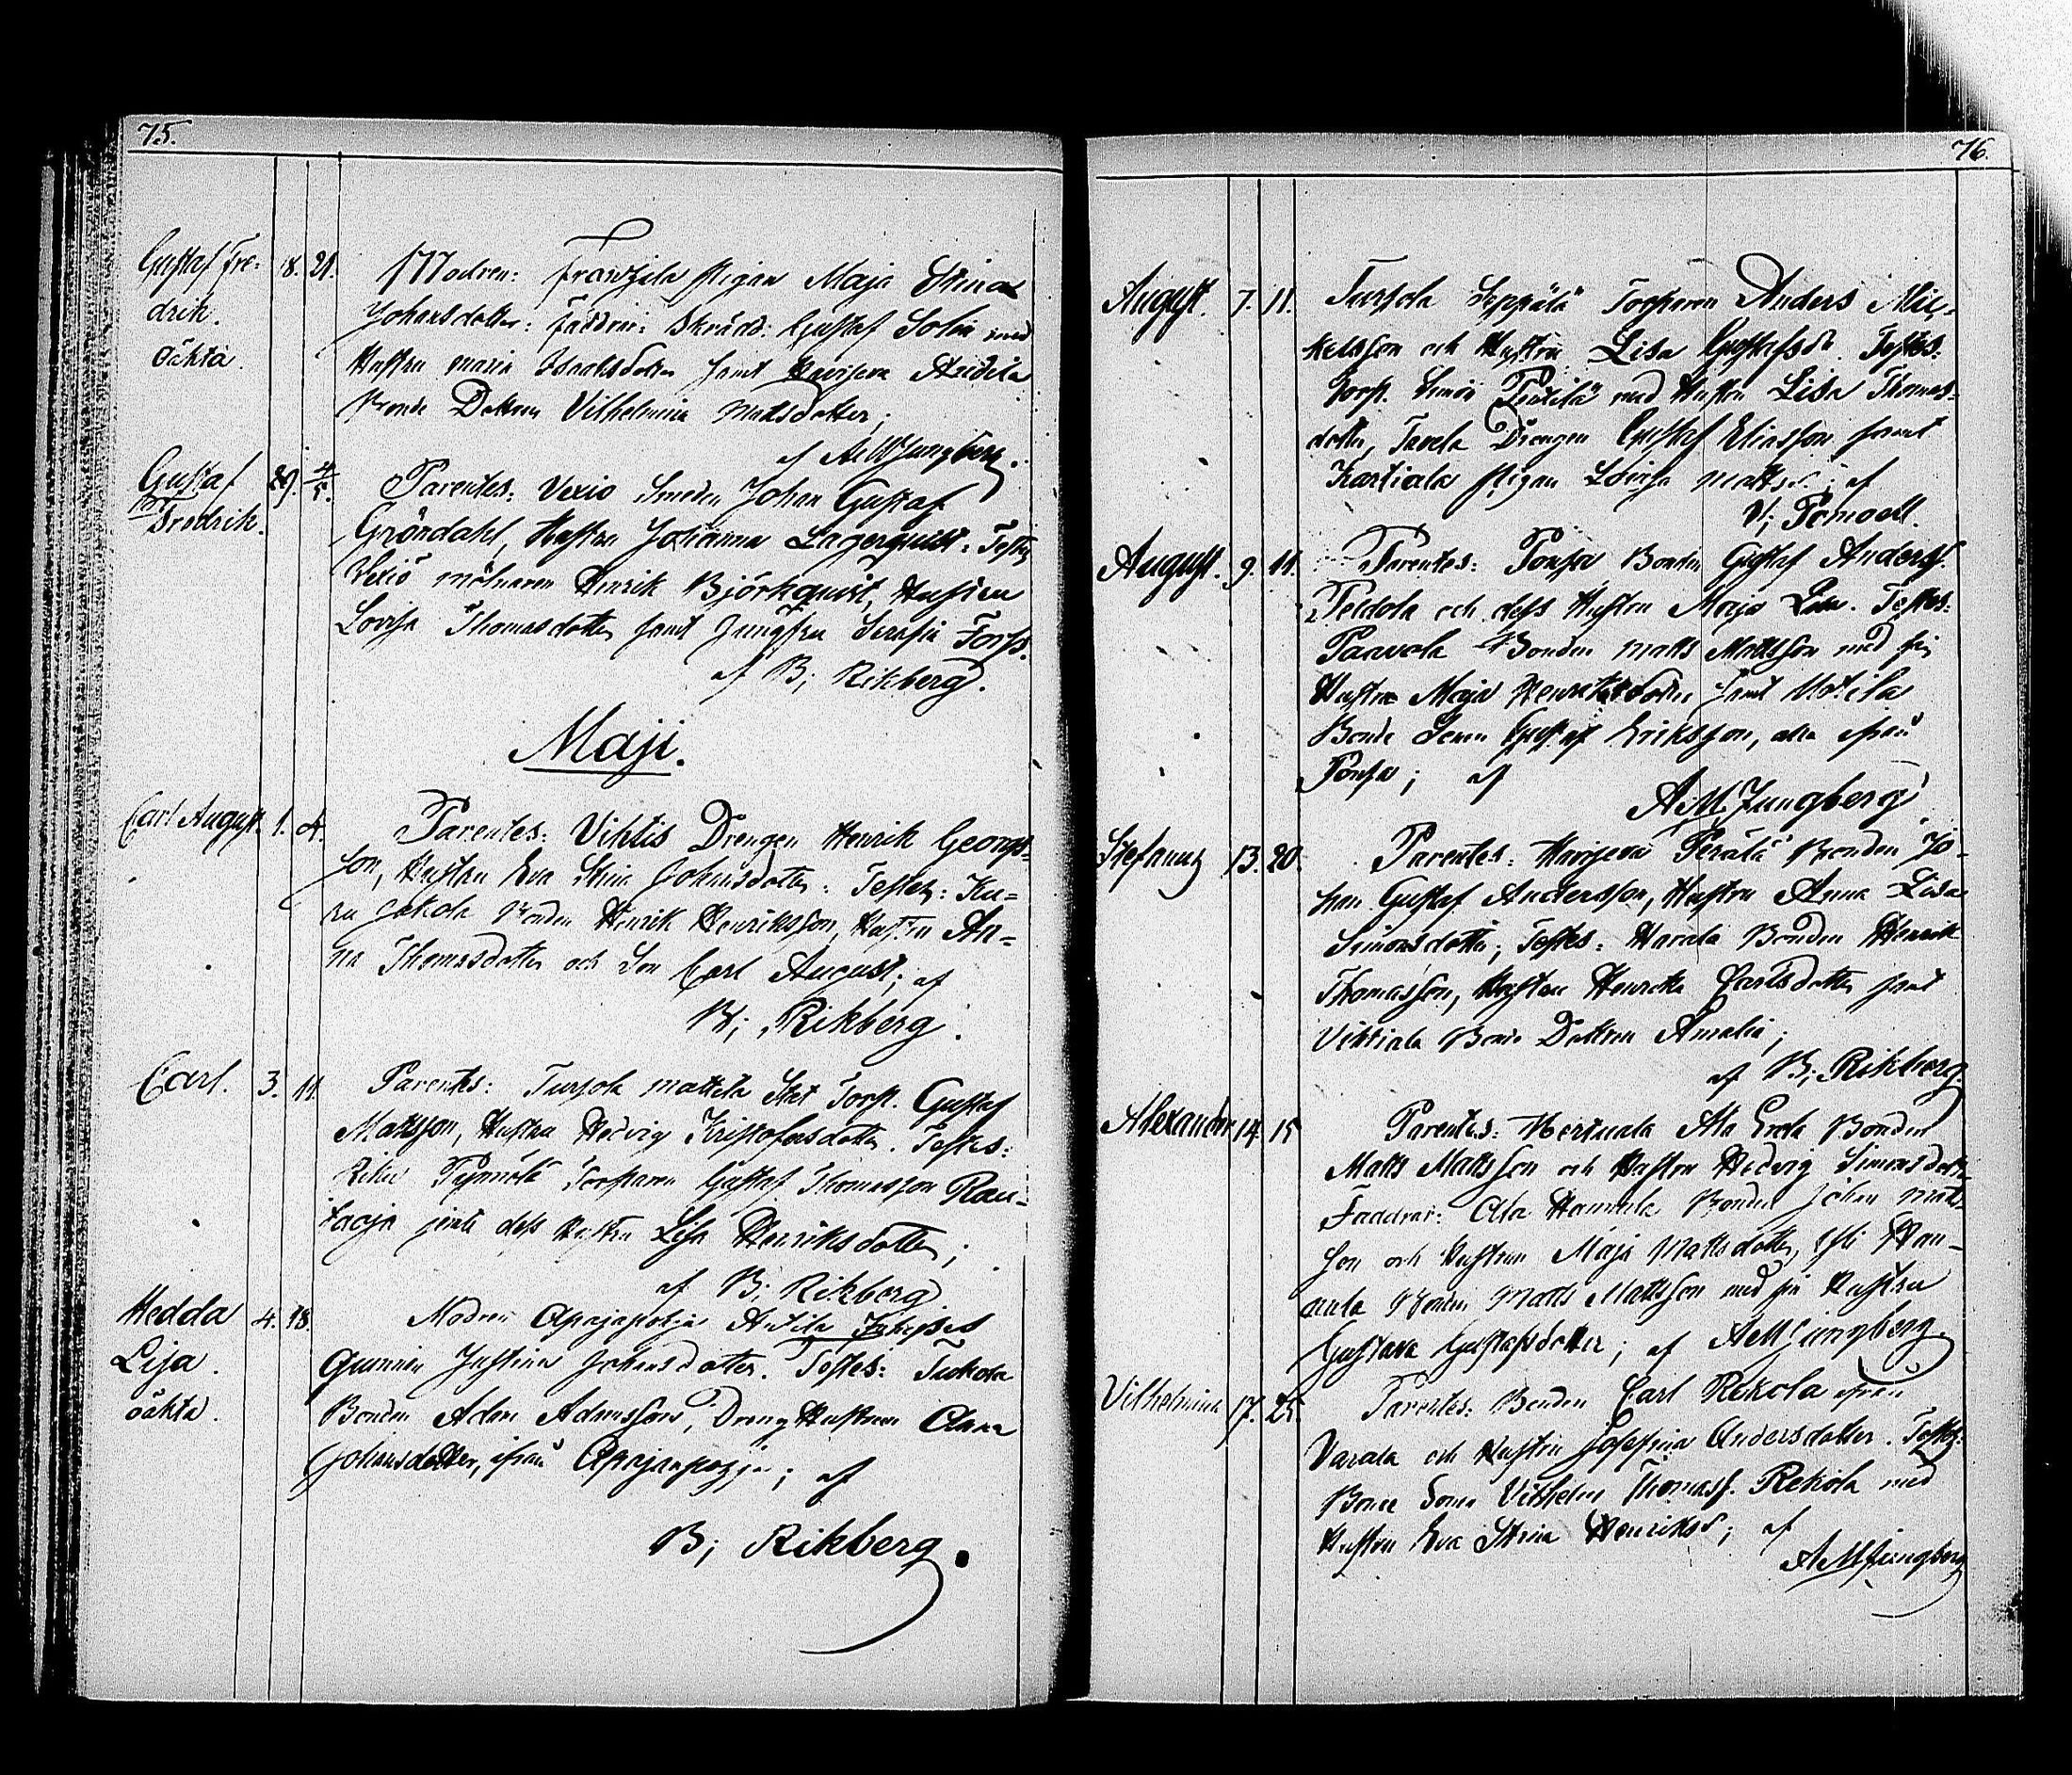 75.
Gustaf Fre-
drik.
oäkta.
18. 21.
Modren: Frantsila pigan Maja Stina
Johansdotter: Faddrar: Skrädd: Gustaf Solin med
Hustru Maria Isaaksdotter samt Anidila
Bonde Dottren Vilhelmina Mattsdotter;
af AMLjungberg.
Gustaf
Fredrik.
29. 4/5.
Parentes: Vexiö Smeden Johan Gustaf
Gröndahl, Hustru Johanna Lagerquist: Testes
Vexiö mölnaren Henrik Björkqvist, Hustru
Lovisa Thomasdotter samt Jungfru Serafia Forss.
af B; Rikberg.
Maji.
Carl August 1. 4.
Parentes: Vihtis Drengen Henrik Georgs-
son, Hustru Eva Stina Johansdotter: Testes:
Bonden Henrik Henriksson, Hustru An-
na Thomasdotter och Son Carl August; af
B; Rikberg.
Carl. 3. 11.
Parentes: Tursola Mattila Torp. Gustaf
Mattsson, Hustru Hedvig Kristofersdotter. Testes:
Torparen Gustaf Thomasson Rau-
dess Hustru Lisa Henriksdotter;
af B; Rikberg
Hedda
Lisa.
oäkta.
4. 18.
Modren Antila
Qvinnan Justina Johansdotter. Testes: Tuokola
Bonden Adam Adamsson, Dreng Hustrun Anna
Johansdotter, ifrån; af
B; Rikberg.
76.
August. 7. 11.
Tursola Seppälä Torparen Anders Mic-
kelsson och Hustru Lisa Gustafsdr. Testes:
Torp. Simon Penttilä med Hustru Lisa Thomas-
dotter, Tavela Drengen Gustaf Eliasson samt
Kartiala pigan Lovisa Mattsd. af
V; Pomoell.
August. 9. 11.
Parentes: Ponsa Bonden Gustaf Anderss.
Peldola och dess Hustru Maja Lisa. Testes:
Paavola Bonden Matts Mattsson med sin
Hustru Maja Henriksdotter samt Motila
Bonde Sonen Gustaf Eriksson, alla ifrån
Ponsa; af
AMLjungberg
Stefanus 13. 20.
Parentes: Perälä Bonden Jo-
han Gustaf Andersson, Hustru Anna Lisa
Simonsdotter; Testes: Harala Bonden Henrik
Thomasson, Hustru Henrika Carlsdotter samt
Vihtiala Bonde Dottren Amalia;
af B; Rikberg.
Alexander 14. 15
Parentes: Mertuala Ala Erola Bonden
Matts Mattsson och Hustru Hedvig Simonsdotter
Faddrar: Ala Hannula Bonden Johan Matts-
son och Hustrun Maja Mattsdotter, Yli Han-
nula Bonden Matts Mattsson med sin Hustru
Gustava Gustafsdotter; af AMLjungberg
Vilhelmina 17. 25.
Parentes: Bonden Carl Rekola ifrån
Varala och Hustru Josefina Andersdotter. Testes:
Bonde Sonen Vilhelm Thomass. Rekola med
Hustru Eva Stina Henriksd; af
AMLjungberg